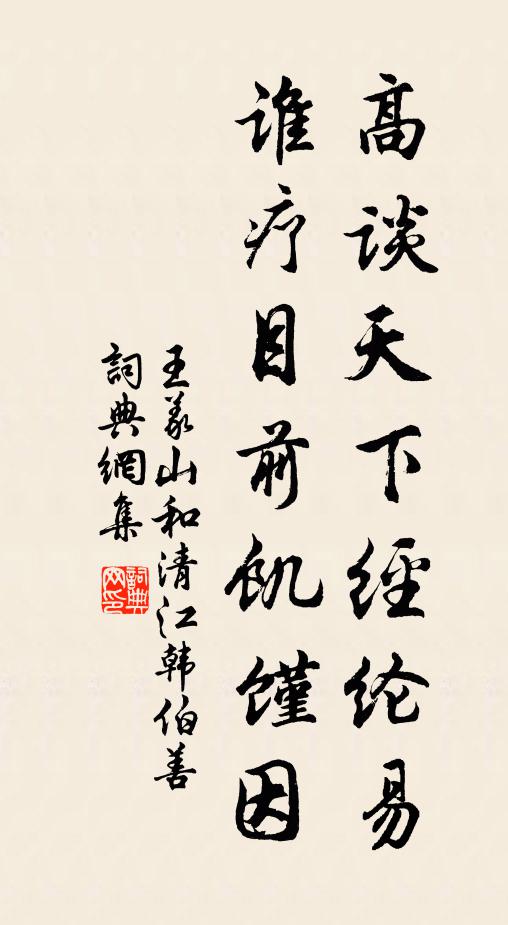 高谈天下经纶易
谁疗目前饥馑因
王义山和清江韩伯善
詞典網集
詞典網印